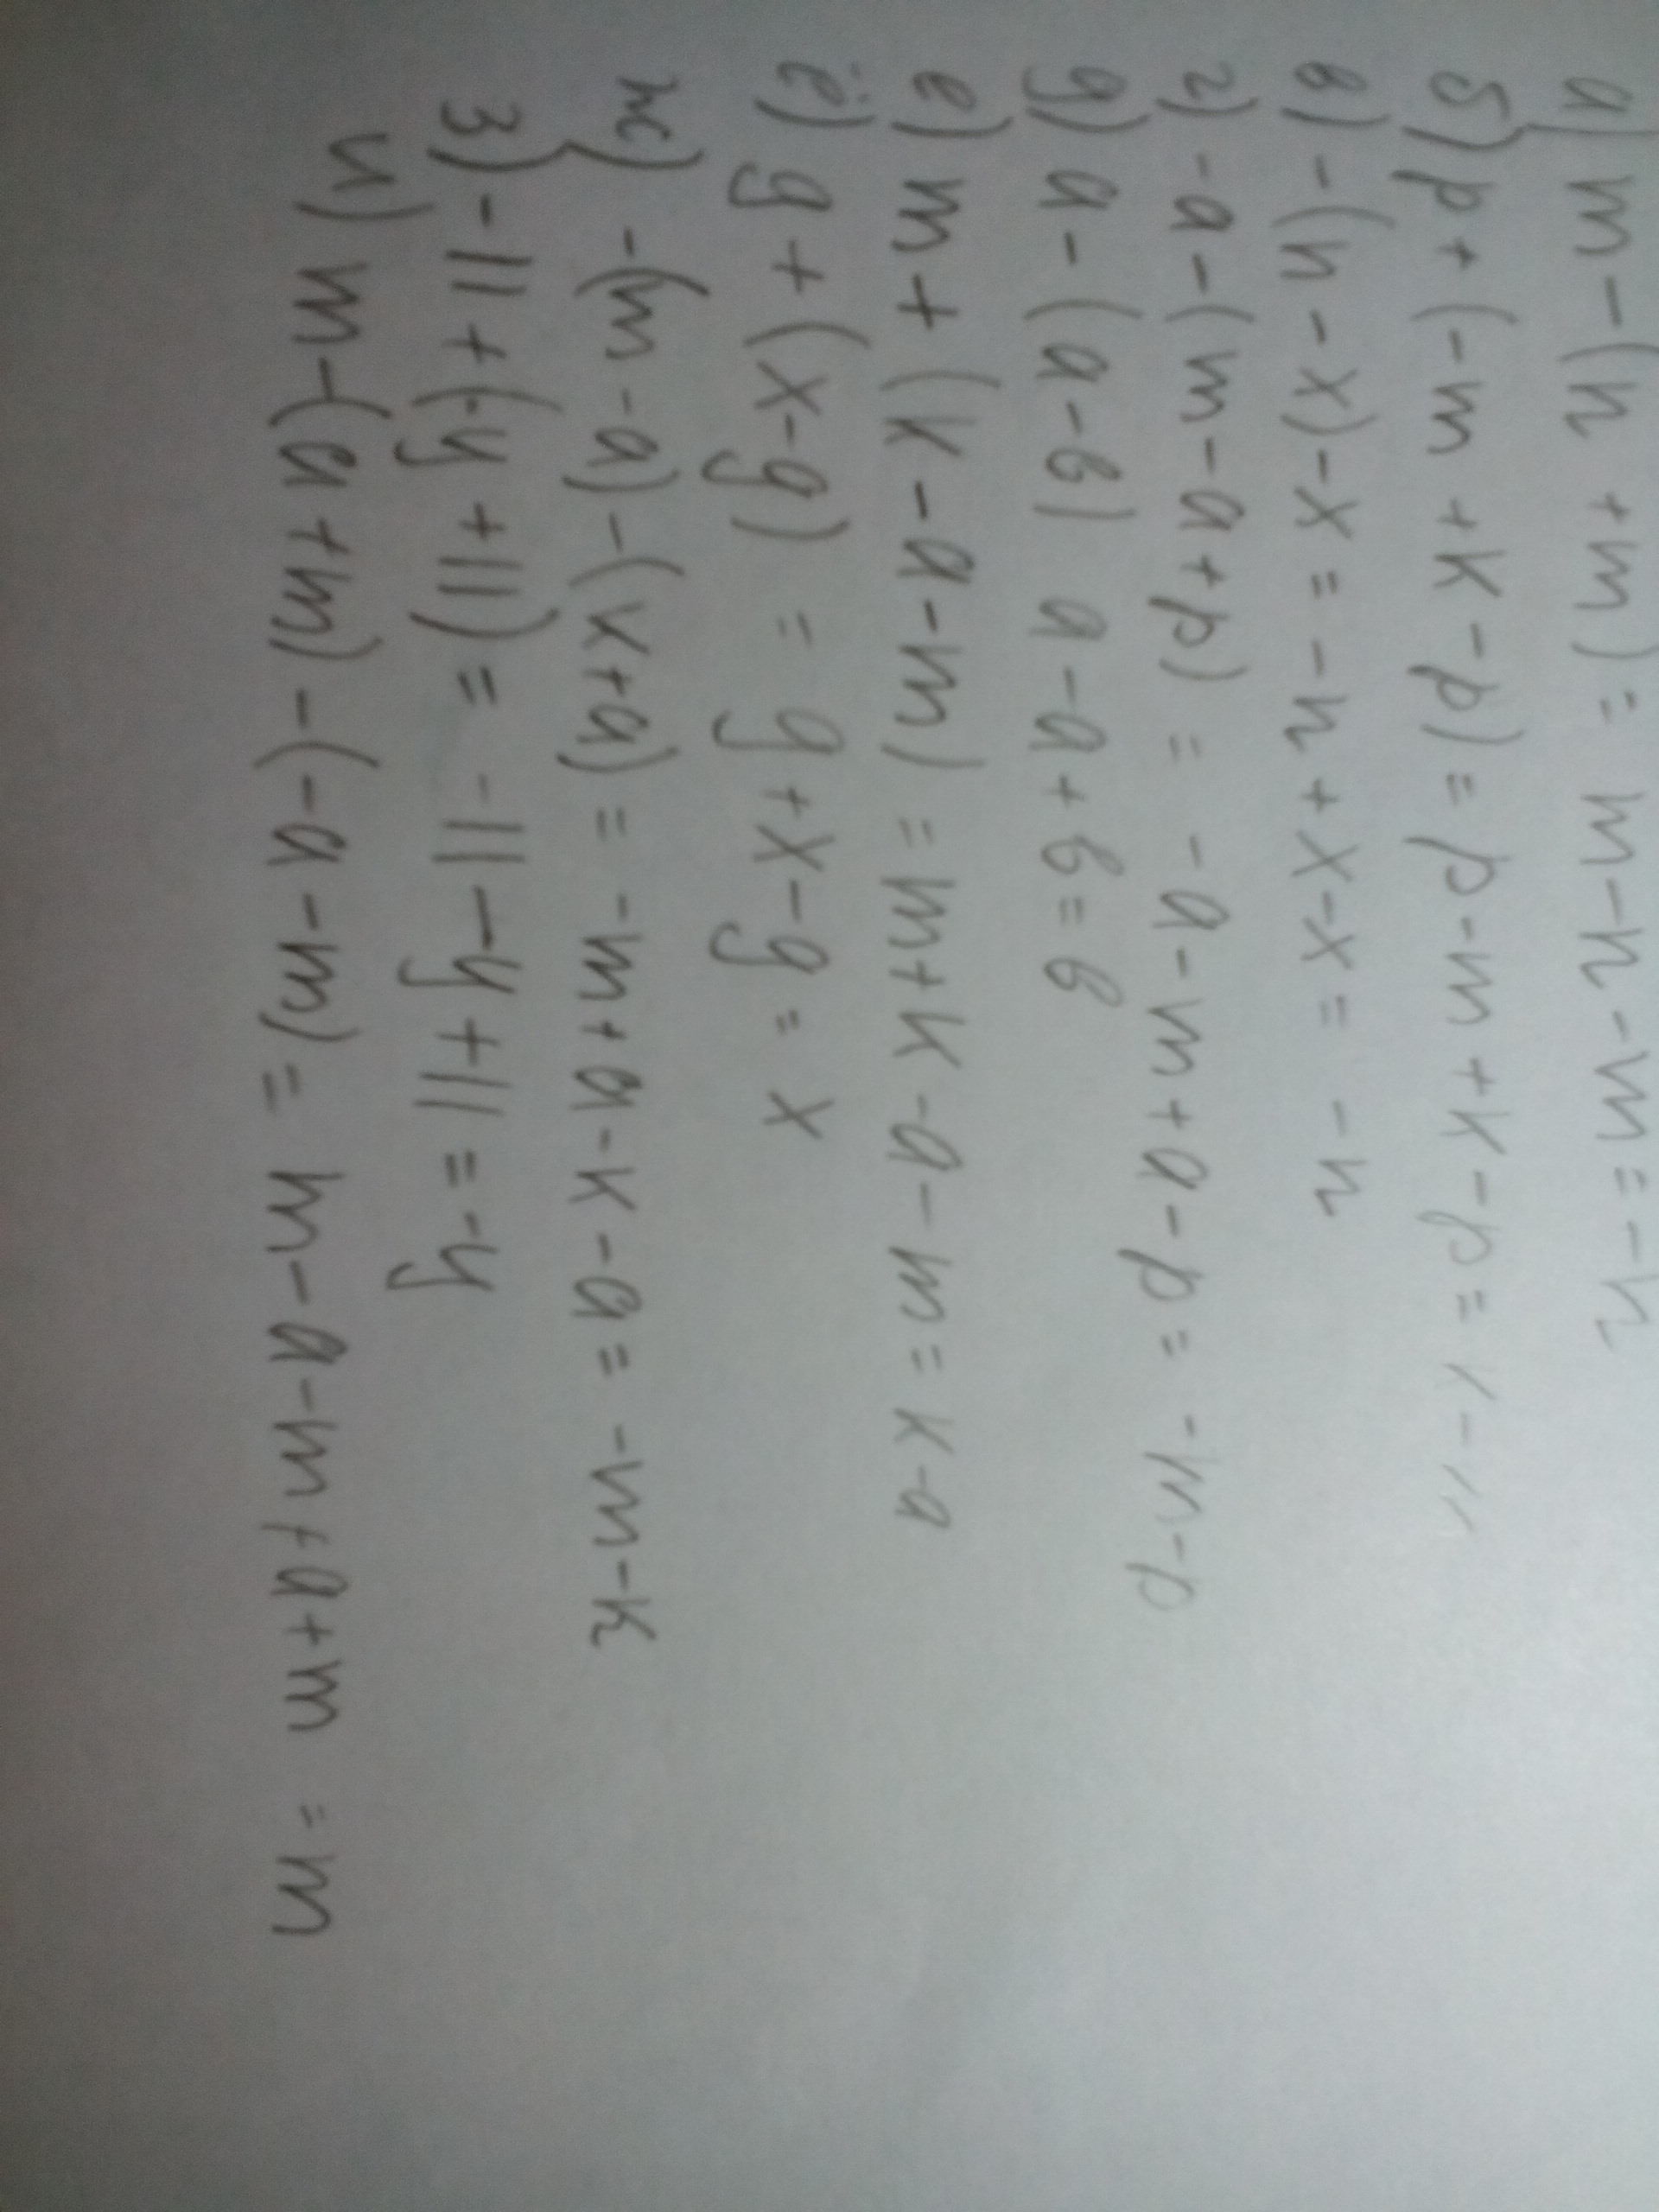 а) m-(n+m)=m-n-m=-n
б) p+(-m+k-p)=p-m+k-p=k-
в) -(n-x)-x=-n+x-x=-n
г) -a-(m-a+p)=-a-m+a-p=-m-p
д) a-(a-в) a-a+в=в
е) m+(k-a-m)=m+k-a-m=k-a
ё) g+(x-g)=g+x-g=x
ж) -(m-a)-(k+a)=-m+a-k-a=-m-k
з) -11+(-y+11)=-11-y+11=-y
и) m-(a+m)-(-a-m)=m-a-m+a+m=m